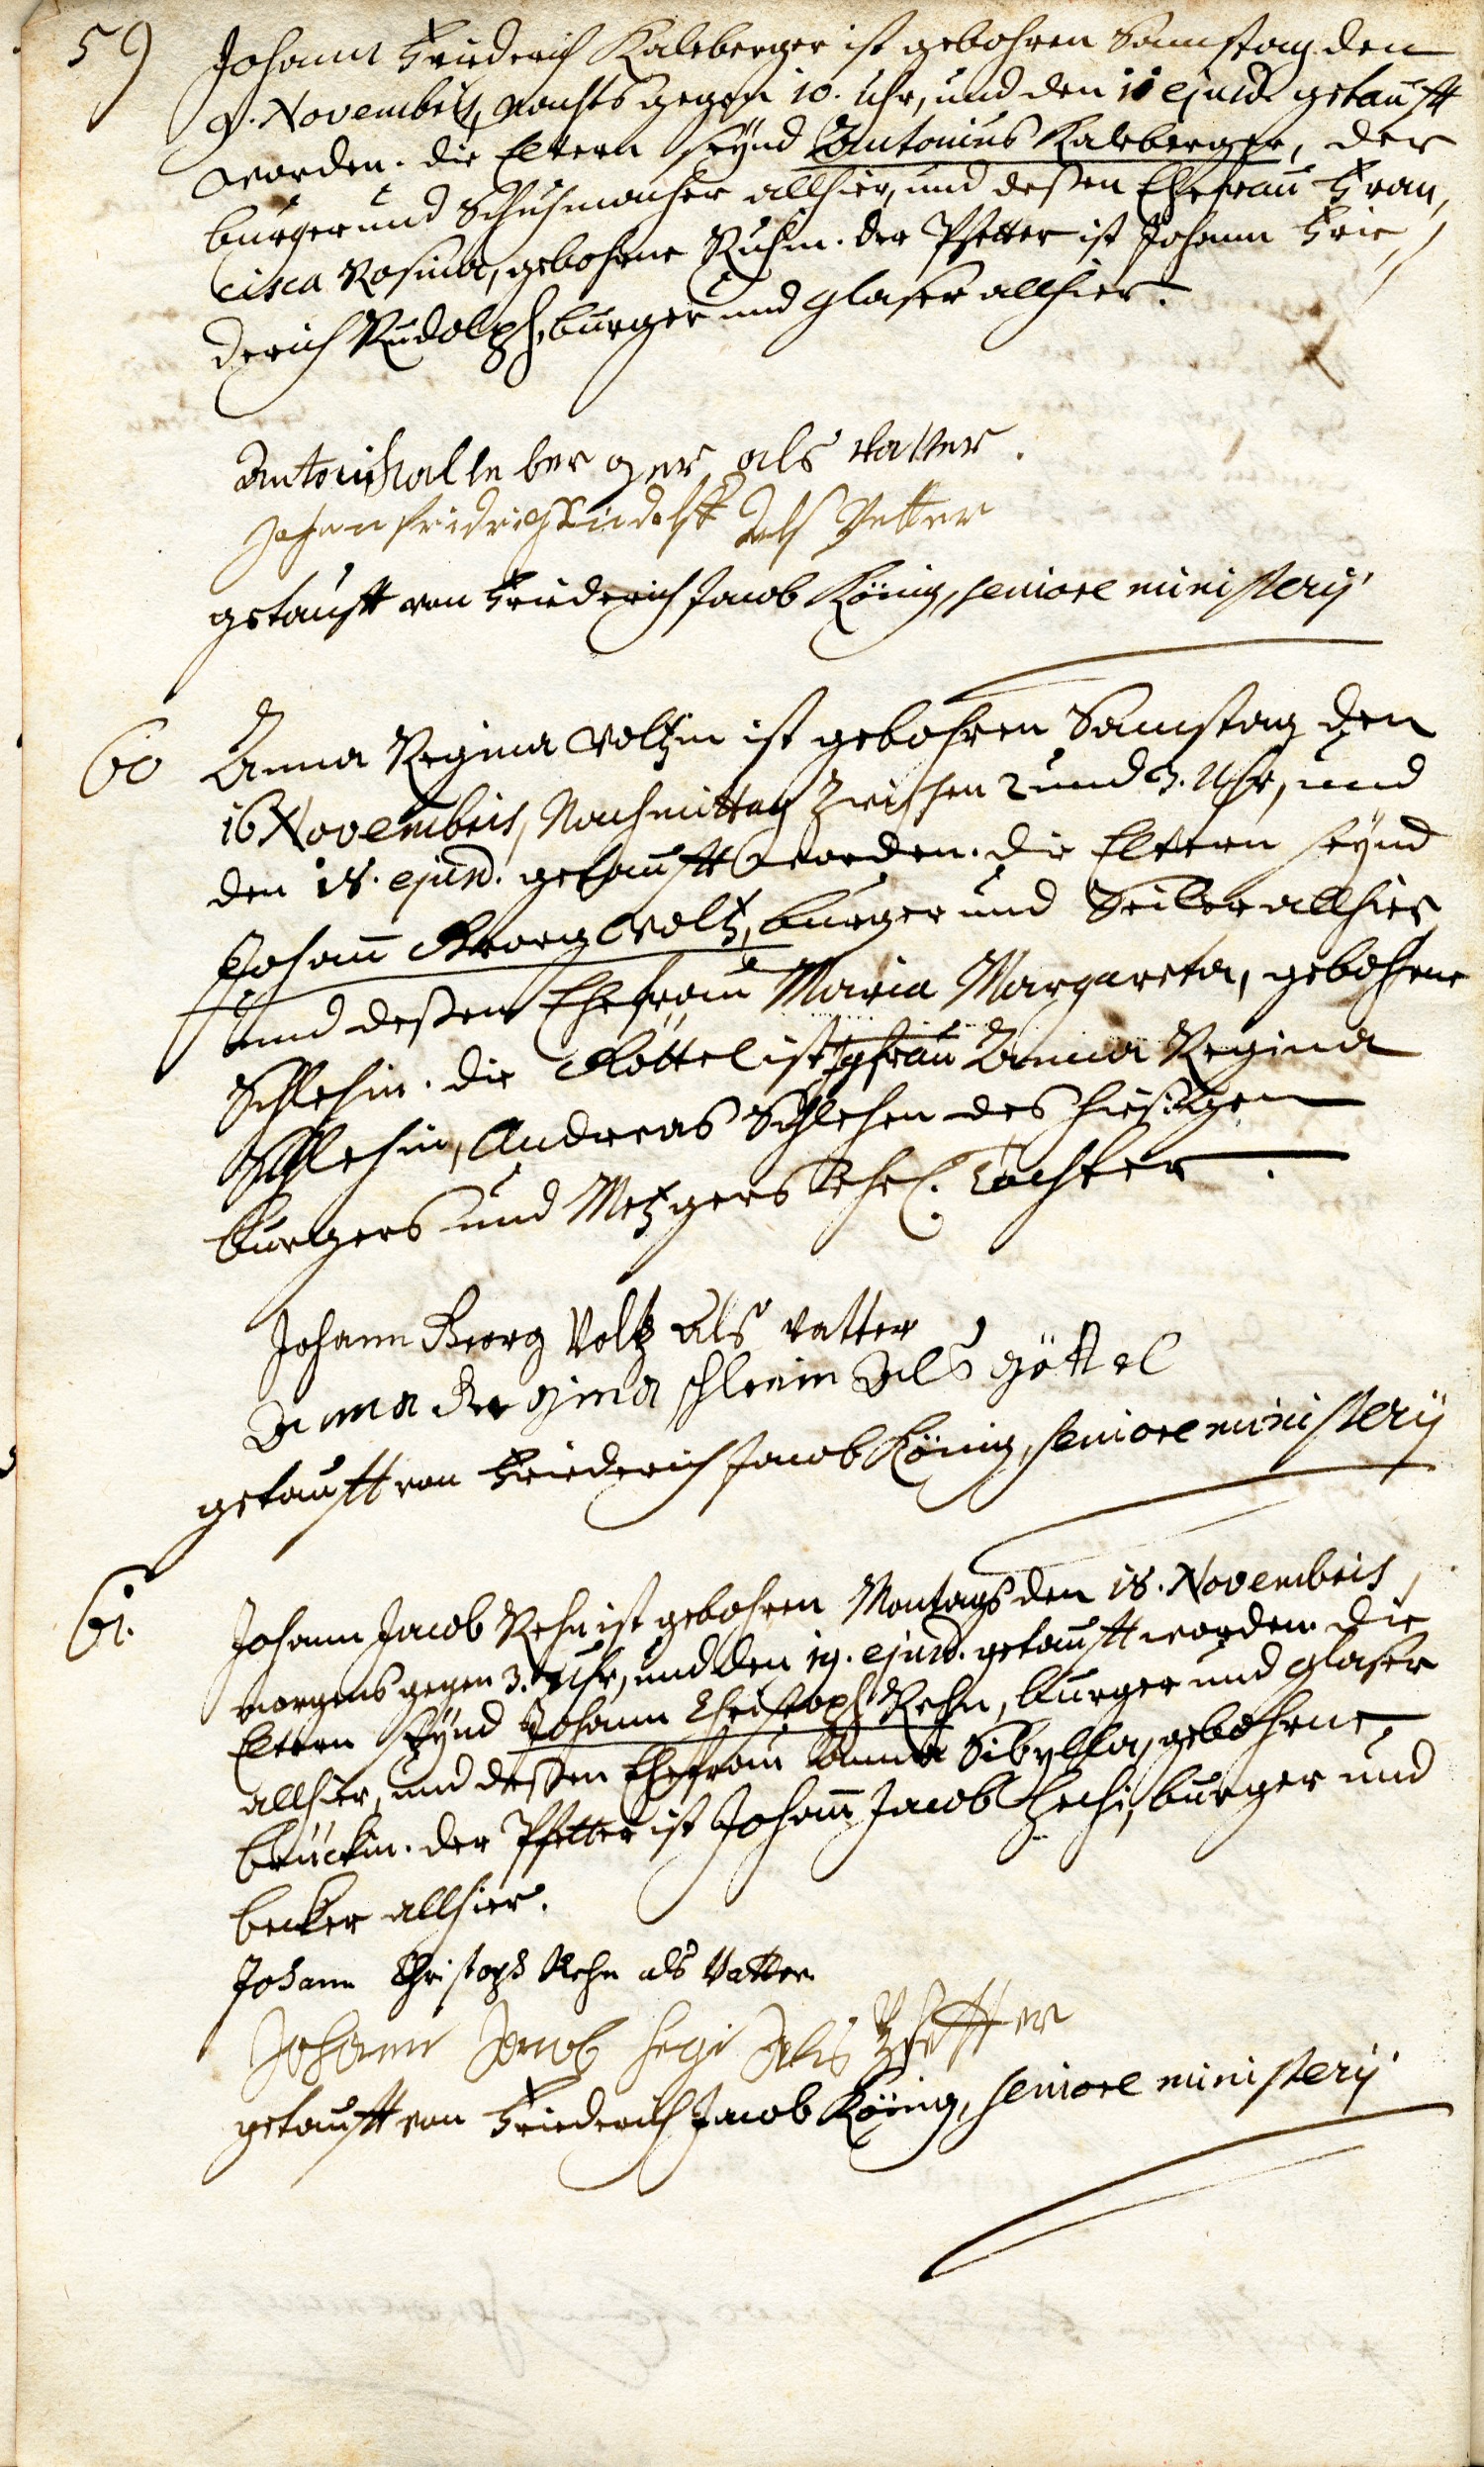 59) Johann Friderich Kaleberger ist gebohren Samstag den
9. Novembris, nachts gegen 10. Uhr, und den 11 ejusd. getaufft
worden. die Eltern seynd Antonius Kaleberger, der
burger und Schuhmacher allhier, und deßen Ehefrau Fran,
cisca Rosina, gebohrne Kuhin. der Pfetter ist Johann Frie,,
derich Rudolph, burger und glaser allhier.
Antoni Kalleberger als Vatter.
Johan fridrich Rudolff Als Pfetter
getaufft von Friederich Jacob König, seniore ministerij
60 Anna Regina Voltzin ist gebohren Samstag den
16 Novembris, Nachmittag zwischen 2 und 3. Uhr, und
den 18. ejusd. getaufft worden. die Eltern seynd
Johann Georg Voltz, burger und Seiler allhier
und deßen Ehefrau Maria Margareta, gebohrne
Schlehin. die Göttel ist Jgfrau Anna Regina
Schlehin, Andreas Schlehen des hiesigen
burgers und Metzgers Ehel. Tochter.
Johann Georg Voltz als Vatter
Anna Regina schleinin Als göttel
getaufft von Friederich Jacob König, seniore ministerij
61. Johann Jacob Rehn ist gebohren Montags den 18. Novembris,
morgens gegen 3. Uhr, und den 19. ejusd. getaufft worden. die
Eltern seynd Johann Christoph Rehn, burger und glaser
allhier, und deßen Ehefrau Anna Sibylla, gebohrne
brückin. der Pfetter ist Johann Jacob Hechi, burger und
becker allhier.
Johann Christoph Rehn als Vatter
Johann Jacob hegi Als Pfetter
getaufft von Friederich Jacob König, seniore ministerij